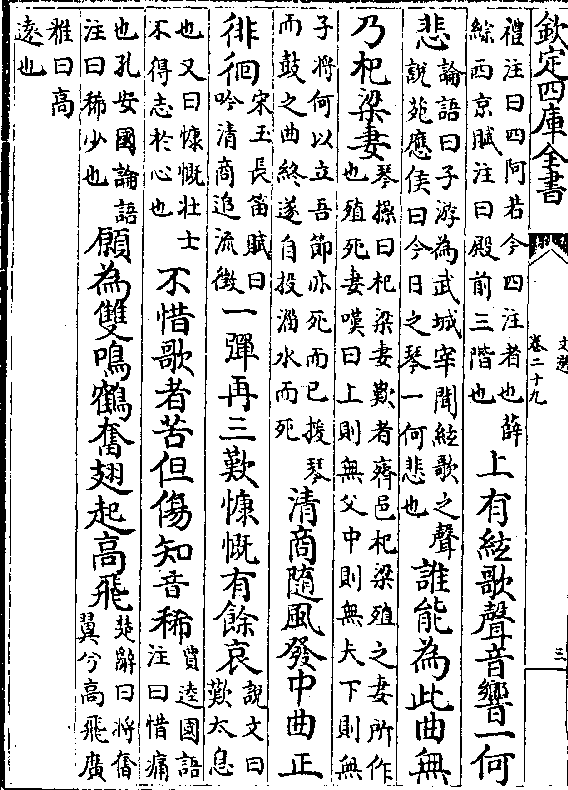 欽定四庫全書
文選
卷二十九
三
禮注曰四阿若今四注者也薛
綜西京賦注曰殿前三階也
上有絃歌聲音響一何
悲
論語曰子游為武城宰聞絃歌之聲
說苑應侯曰今日之琴一何悲也
誰能為此曲無
乃杞梁妻
琴操曰杞梁妻歎者齊邑杞梁殖之妻所作
也殖死妻嘆曰上則無父中則無夫下則無
子將何以立吾節亦死而已援琴
而鼓之曲終遂自投淄水而死
清商隨風發中曲正
徘徊
宋玉長笛賦曰
吟清商追流徵
一彈再三歎慷慨有餘哀
說文曰
歎太息
也又曰慷慨壯士
不得志於心也
不惜歌者苦但傷知音稀
賈逵國語
注曰惜痛
也孔安國論語
注曰稀少也
願為雙鳴鶴奮翅起高飛
楚辭曰將奮
翼兮高飛廣
雅曰高
遠也